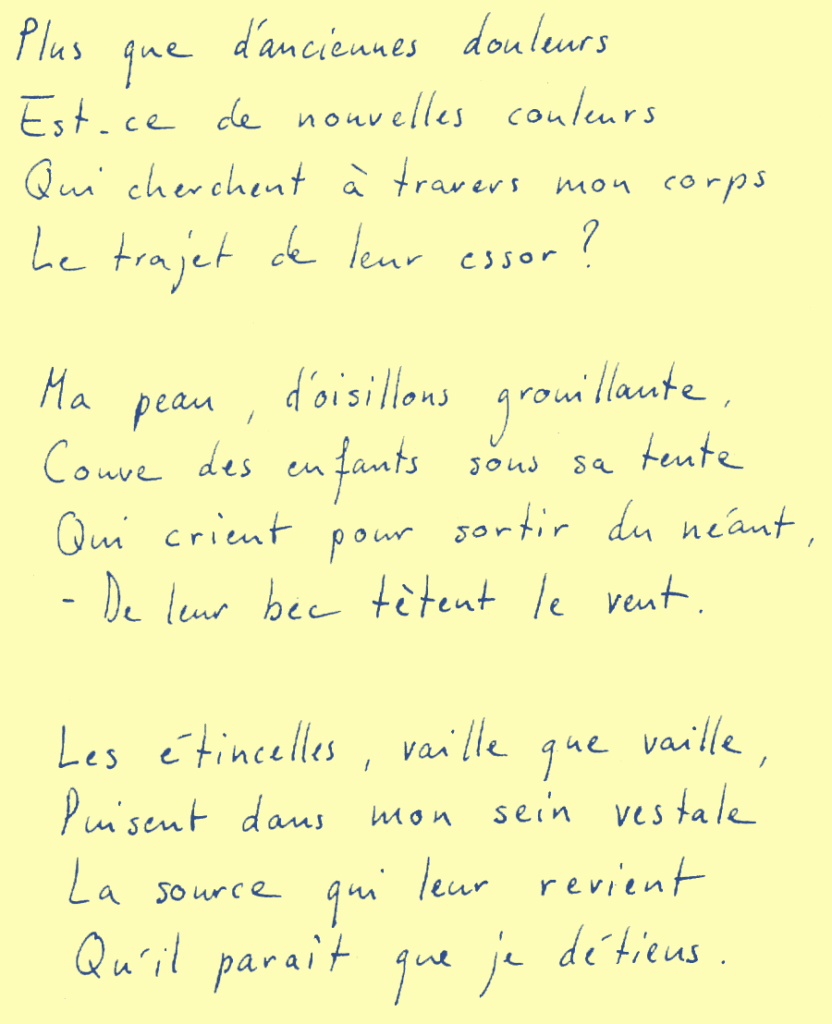 Plus que d'anciennes douleurs
Est-ce de nouvelles couleurs
Qui cherchent à travers mon corps
Le trajet de leur essor ?
Ma peau, d'oisillons grouillante,
Couve des enfants sous sa tente
Qui crient pour sortir du néant,
- De leur bec tètent le vent.
Les étincelles, vaille que vaille,
Puisent dans mon sein vestale
La source qui leur revient
Qu'il paraît que je détiens.